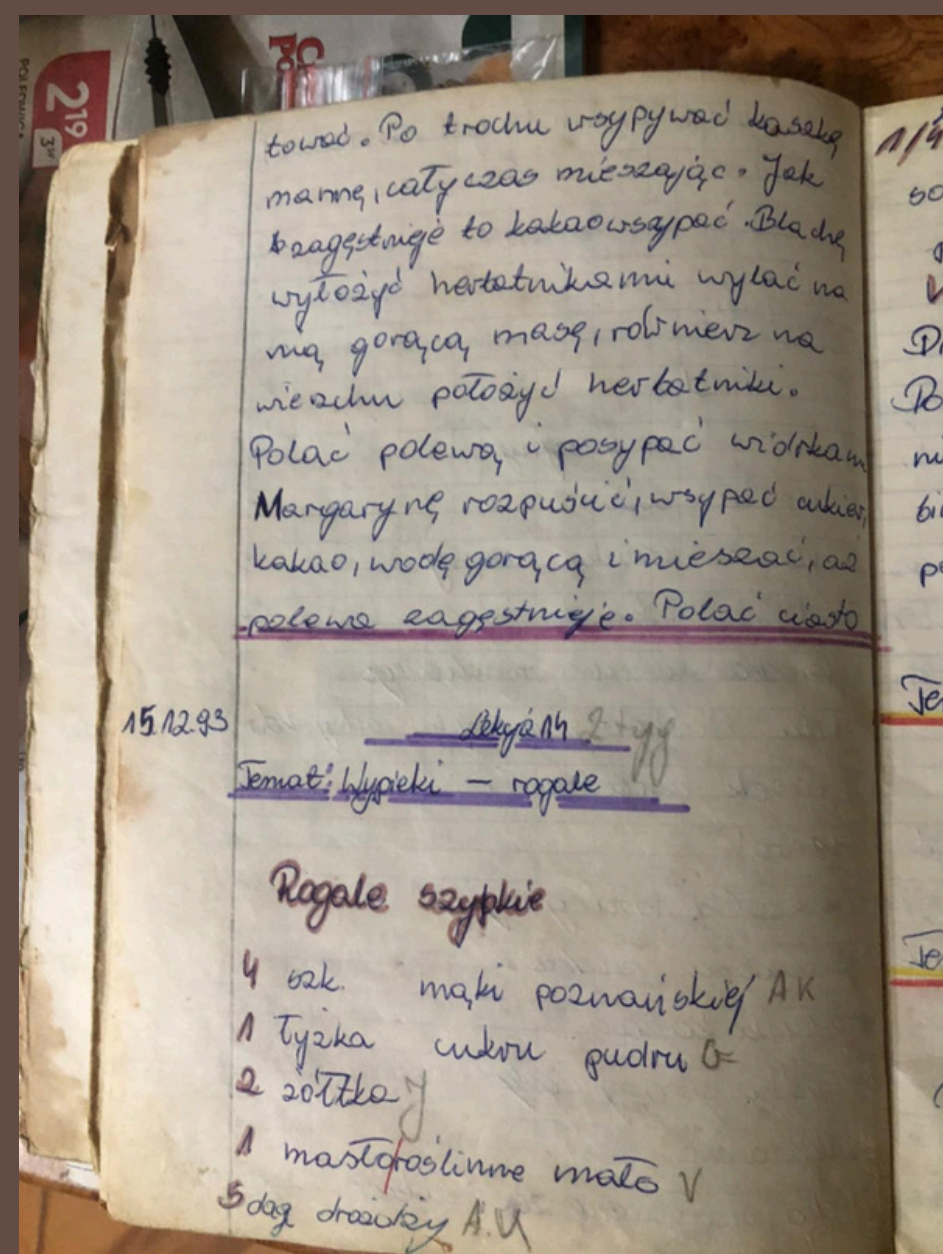 219
3
tować. Po trochu wsypywać kaszkę
mannę, cały czas mieszając. Jak
zagęstnieje to kakao wsypać. Blachę
wyłożyć herbatnikami wylać na
nią gorącą masę, również na
wierzchu położyć herbatniki.
Polać polewą i posypać wiórkam
Margarynę rozpuścić, wsypać cukier,
kakao, wodę gorącą i mieszać, aż
polewa zagęstnieje. Polać ciasto
15.12.93 Lekcja 14 2 tyg
Temat: Wypieki – rogale
Rogale szypkie
4 szk. mąki poznańskiej A K
1 łyżka cukru pudru G
2 żółtka J
1 masło roślinne mało V
5 dag drożdzy A.U
1/4
so
Do
ni
bi
pe
Te
Te